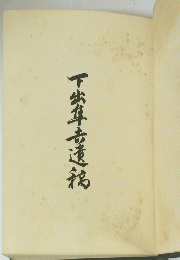 下出隼吉遺稿